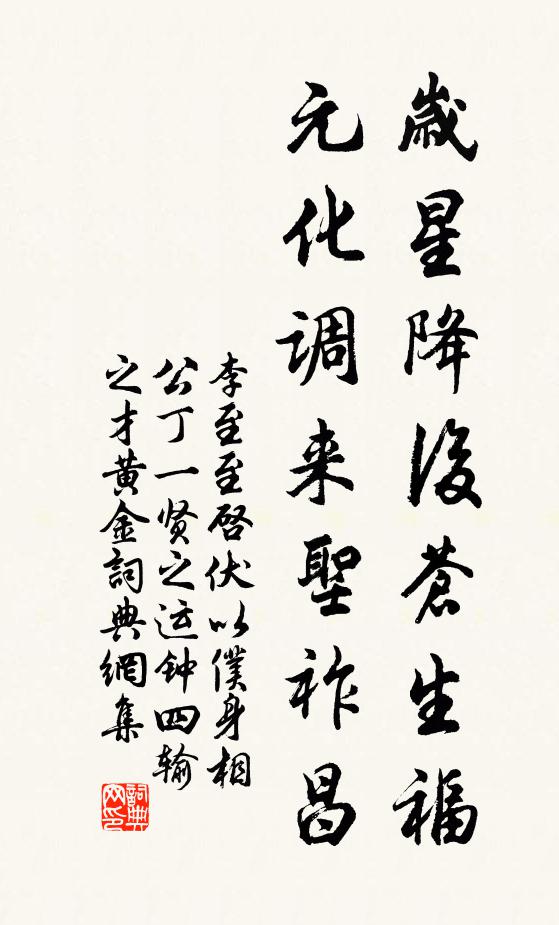 歳星降後蒼生福
元化調来聖祚昌
李至至啓伏以僕身相
公丁一贤之运钟四输
之才黄金詞典網集
詞典网印